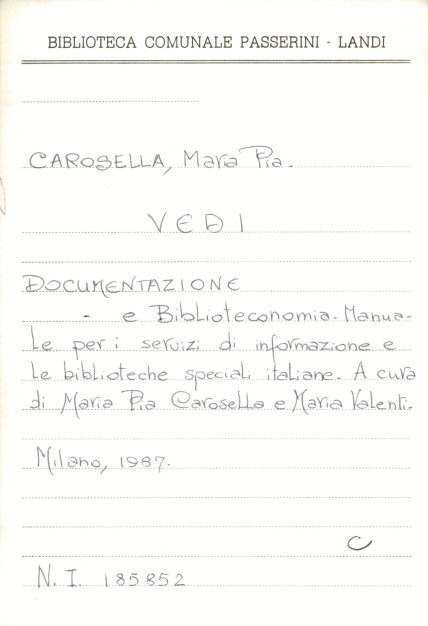 BIBLIOTECA COMUNALE PASSERINI - LANDI
CAROSELLA, Maria Pia.
VEDI
DOCUMENTAZIONE
- e Biblioteconomia. Manua-
le per i servizi di informazione e
le biblioteche speciali italiane. A cura
di Maria Pia Carosella e Maria Valenti.
Milano, 1987.
C
N. I. 185852